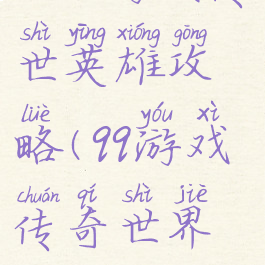 shì yīng xióng gōng
世英雄攻
lüè yóu xì
略(99游戏
chuán qí shì jiè
传奇世界